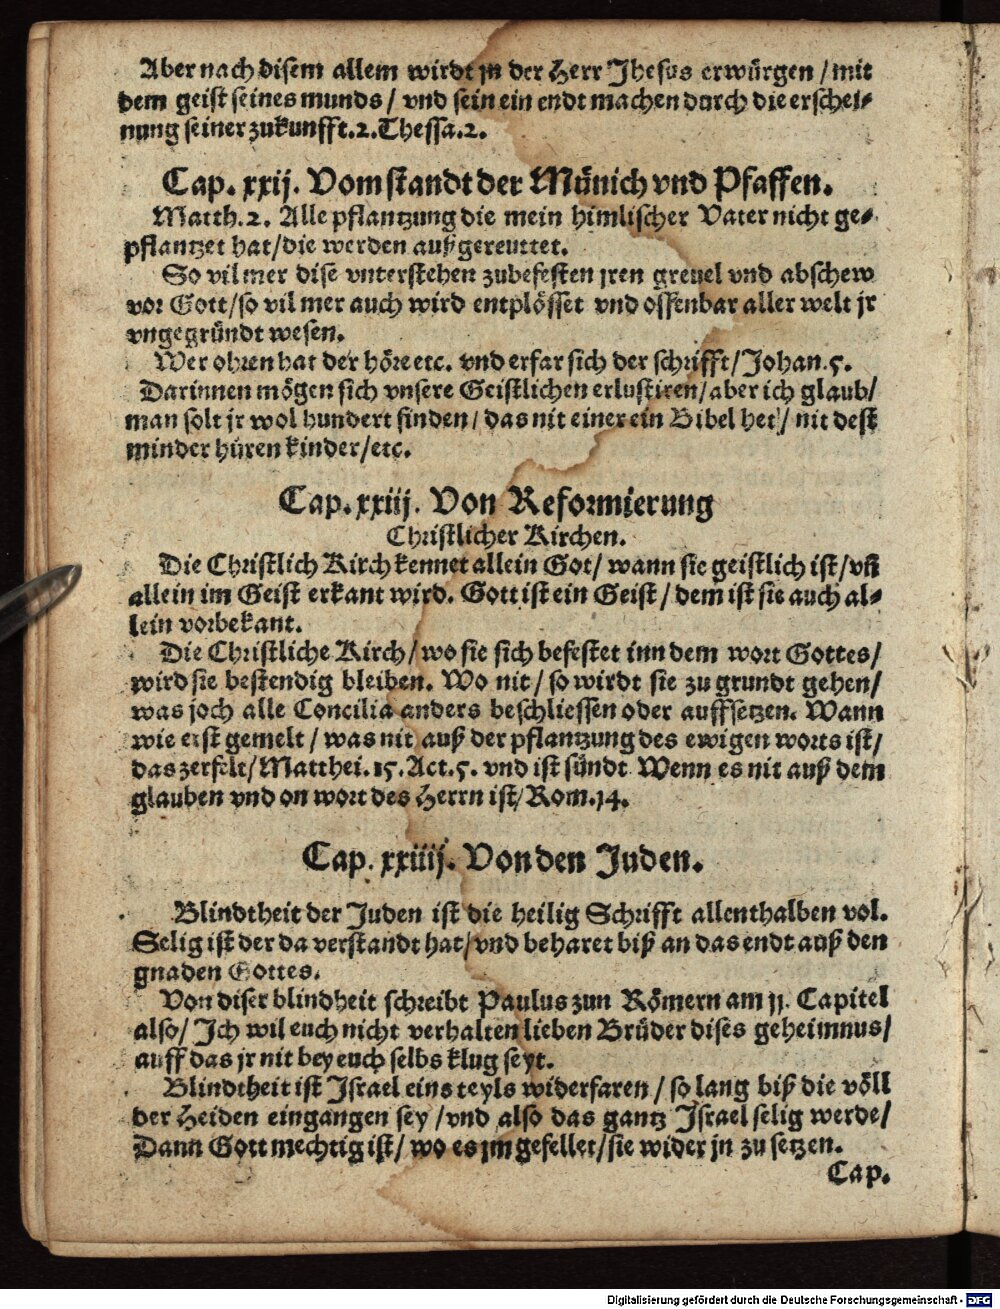 Aber nach disem allem wirdt jn der Herr Jhesus erwürgen / mit
dem geist seines munds / vnd sein ein endt machen durch die erschei⸗
nung seiner zukunfft.2.Thessa.2.
Cap. xxij. Vom standt der Münich vnd Pfaffen.
Matth.2. Alle pflantzung die mein himlischer Vater nicht ge⸗
pflantzet hat/die werden außgereuttet.
So vil mer dise vnterstehen zubefesten jren greuel vnd abschew
vor Gott/so vil mer auch wird entplösset vnd offenbar aller welt jr
vngegründt wesen.
Wer ohren hat der höre etc. vnd erfar sich der schrifft/Johan.5.
Darinnen mögen sich vnsere Geistlichen erlustiren/aber ich glaub/
man solt jr wol hundert finden / das nit einer ein Bibel het / nit dest
minder hüren kinder/etc.
Cap. xxiij. Von Reformierung
Christlicher Kirchen.
Die Christlich Kirch kennet allein Got/ wann sie geistlich ist/vñ
allein im Geist erkant wird. Gott ist ein Geist / dem ist sie auch al⸗
lein vorbekant.
Die Christliche Kirch/ wo sie sich befestet inn dem wort Gottes/
wird sie bestendig bleiben. Wo nit / so wirdt sie zu grundt gehen/
was joch alle Concilia anders beschliessen oder auffsetzen. Wann
wie erst gemelt / was nit auß der pflantzung des ewigen worts ist/
das zerfelt/Matthei.15.Act.5. vnd ist sündt Wenn es nit auß dem
glauben vnd on wort des Herrn ist/Rom.14.
Cap. xxiiij. Von den Juden.
Blindtheit der Juden ist die heilig Schrifft allenthalben vol.
Selig ist der da verstandt hat/vnd beharet biß an das endt auß den
gnaden Gottes.
Von diser blindheit schreibt Paulus zun Römern am 11. Capitel
also/ Ich wil euch nicht verhalten lieben Brüder dises geheimnus/
auff das jr nit bey euch selbs klug seyt.
Blindtheit ist Israel eins teyls widerfaren / so lang biß die völl
der Heiden eingangen sey /vnd also das gantz Israel selig werde/
Dann Gott mechtig ist/ wo es jm gefellet/sie wider jn zu setzen.
Cap.
Digitalisierung gefördert durch die Deutsche Forschungsgemeinschaft - DFG